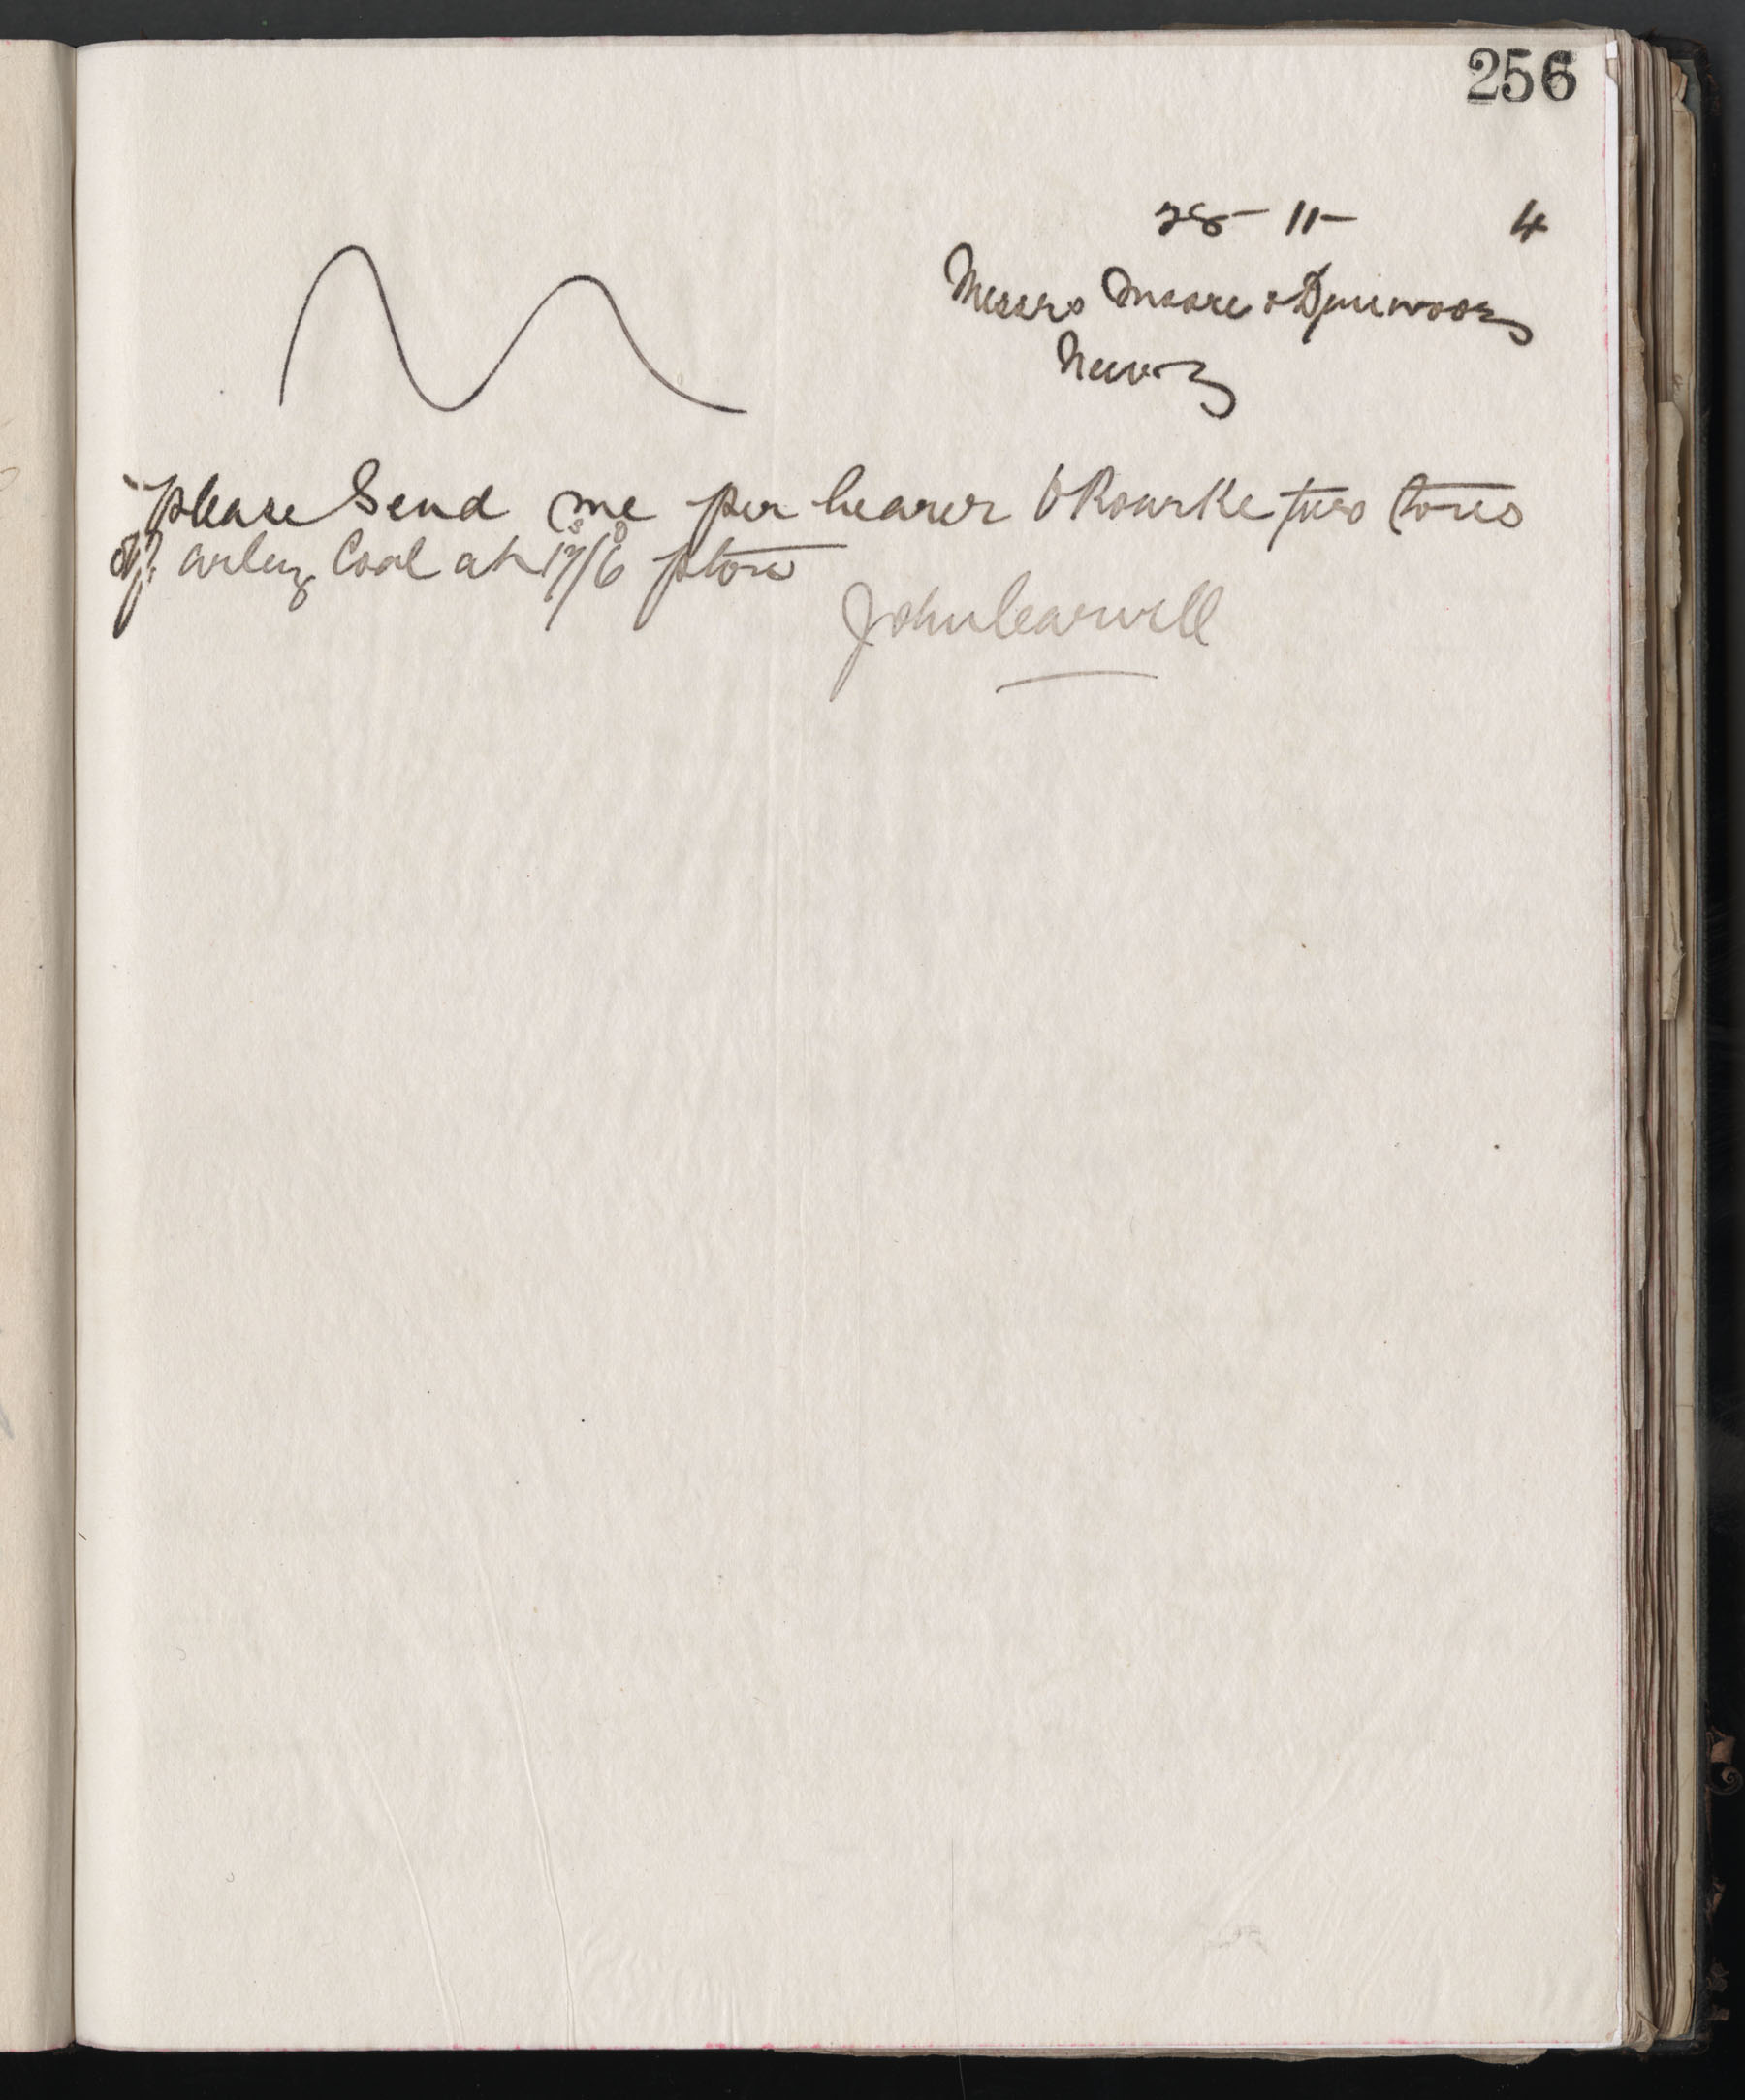 256
28 - 11 - 4
Messrs Moore & Dinwoody
Newry
please Send me per bearer O Rourke two tons
of arley Coal at 17s/6d p ton
John Carvill